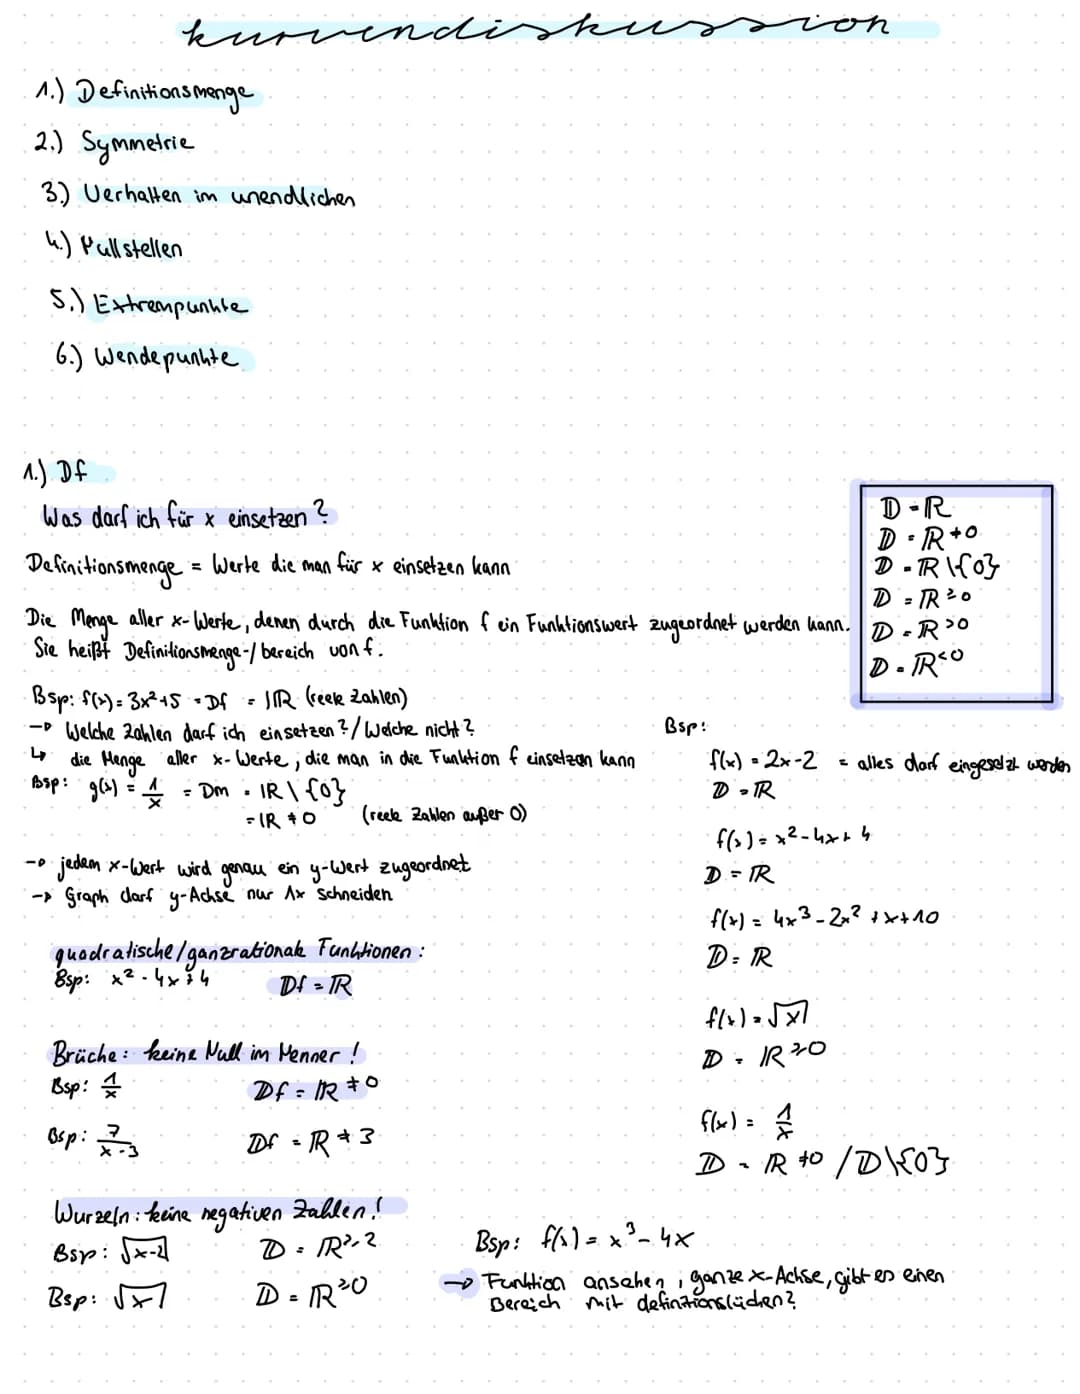 kurvendiskussion
1.) Definitionsmenge
2.) Symmetrie
3.) Verhalten im unendlichen
4.) Nullstellen
5.) Extrempunkte
6.) Wendepunkte
1.) Df
Was darf ich für x einsetzen?
Definitionsmenge = Werte die man für x einsetzen kann
Die Menge aller x-Werte, denen durch die Funktion f ein Funktionswert zugeordnet werden kann.
Sie heißt Definitionsmenge-/bereich von f.
𝔻 = ℝ
𝔻 = ℝ ≠0
𝔻 = ℝ\{0}
𝔻 = ℝ ≥0
𝔻 = ℝ >0
𝔻 = ℝ <0
Bsp: f(x) = 3x²+5 = Df = ℝ (reele Zahlen)
→ Welche Zahlen darf ich einsetzen?/Welche nicht?
↳ die Menge aller x-Werte, die man in die Funktion f einsetzen kann
Bsp: g(x) = 1/x = Dm = ℝ\{0}
= ℝ ≠ 0 (reele Zahlen außer 0)
→ jedem x-Wert wird genau ein y-Wert zugeordnet
→ Graph darf y-Achse nur 1x schneiden
quadratische/ganzrationale Funktionen:
Bsp: x² - 4x + 4 𝔻f = ℝ
Brüche: keine Null im Nenner!
Bsp: 1/x 𝔻f = ℝ ≠0
Bsp: 7/(x-3) 𝔻f = ℝ ≠3
Wurzeln: keine negativen Zahlen!
Bsp: √x-2 𝔻 = ℝ ≥2
Bsp: √x 𝔻 = ℝ ≥0
Bsp:
f(x) = 2x-2 = alles darf eingesetzt werden
𝔻 = ℝ
f(x) = x²-4x+4
𝔻 = ℝ
f(x) = 4x³-2x²+x+10
𝔻 = ℝ
f(x) = √x
𝔻 = ℝ ≥0
f(x) = 1/x
𝔻 = ℝ ≠0 / 𝔻\{0}
Bsp: f(x) = x³-4x
→ Funktion ansehen, ganze x-Achse, gibt es einen
Bereich mit definitionslücken?